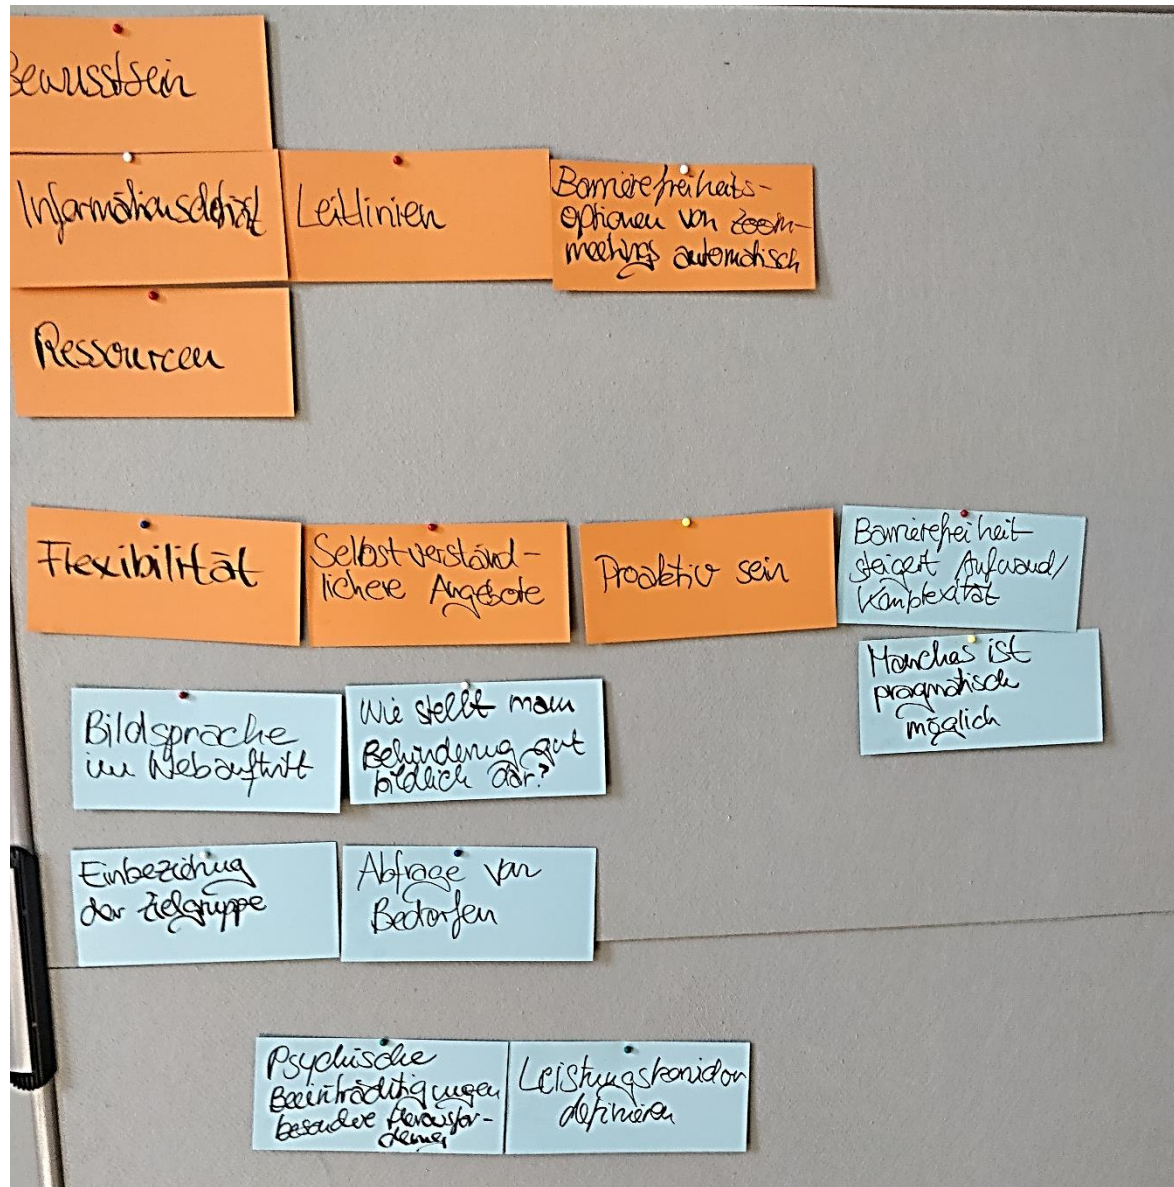 Bewusstsein
Informationsdefizit
Leitlinien
Barrierefreiheits-
optionen von zoom-
meetings automatisch
Ressourcen
Flexibilität
Selbstverständ-
lichere Angebote
Proaktiv sein
Barrierefreiheit
steigert Aufwand/
Komplexität
Manches ist
pragmatisch
möglich
Bildsprache
im Webauftritt
Wie stellt man
Behinderung gut
bildlich dar?
Einbeziehung
der Zielgruppe
Abfrage von
Bedarfen
Psychische
Beeinträchtigungen
besondere Herausfor-
derung
Leistungskorridor
definieren